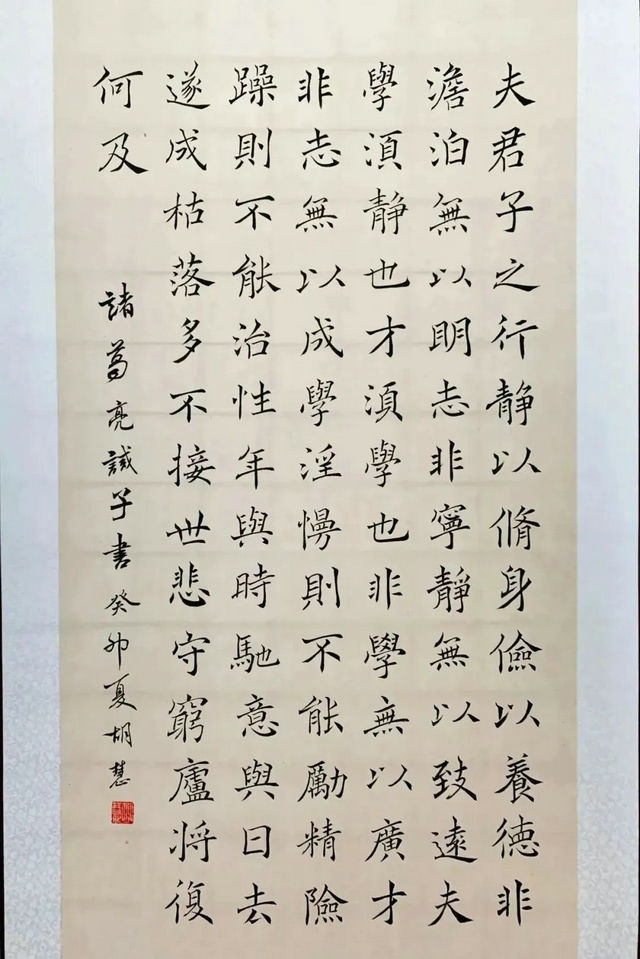 夫君子之行靜以脩身儉以養德非
澹泊無以明志非寧靜無以致遠夫
學須靜也才須學也非學無以廣才
非志無以成學淫慢則不能勵精險
躁則不能治性年與時馳意與日去
遂成枯落多不接世悲守窮廬將復
何及
諸葛亮誡子書癸卯夏胡慧